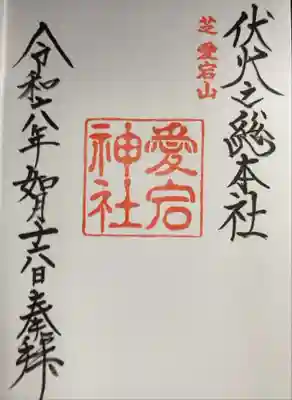 伏火之総本社
芝 愛宕山
愛宕
神社
令和八年如月日奉拝